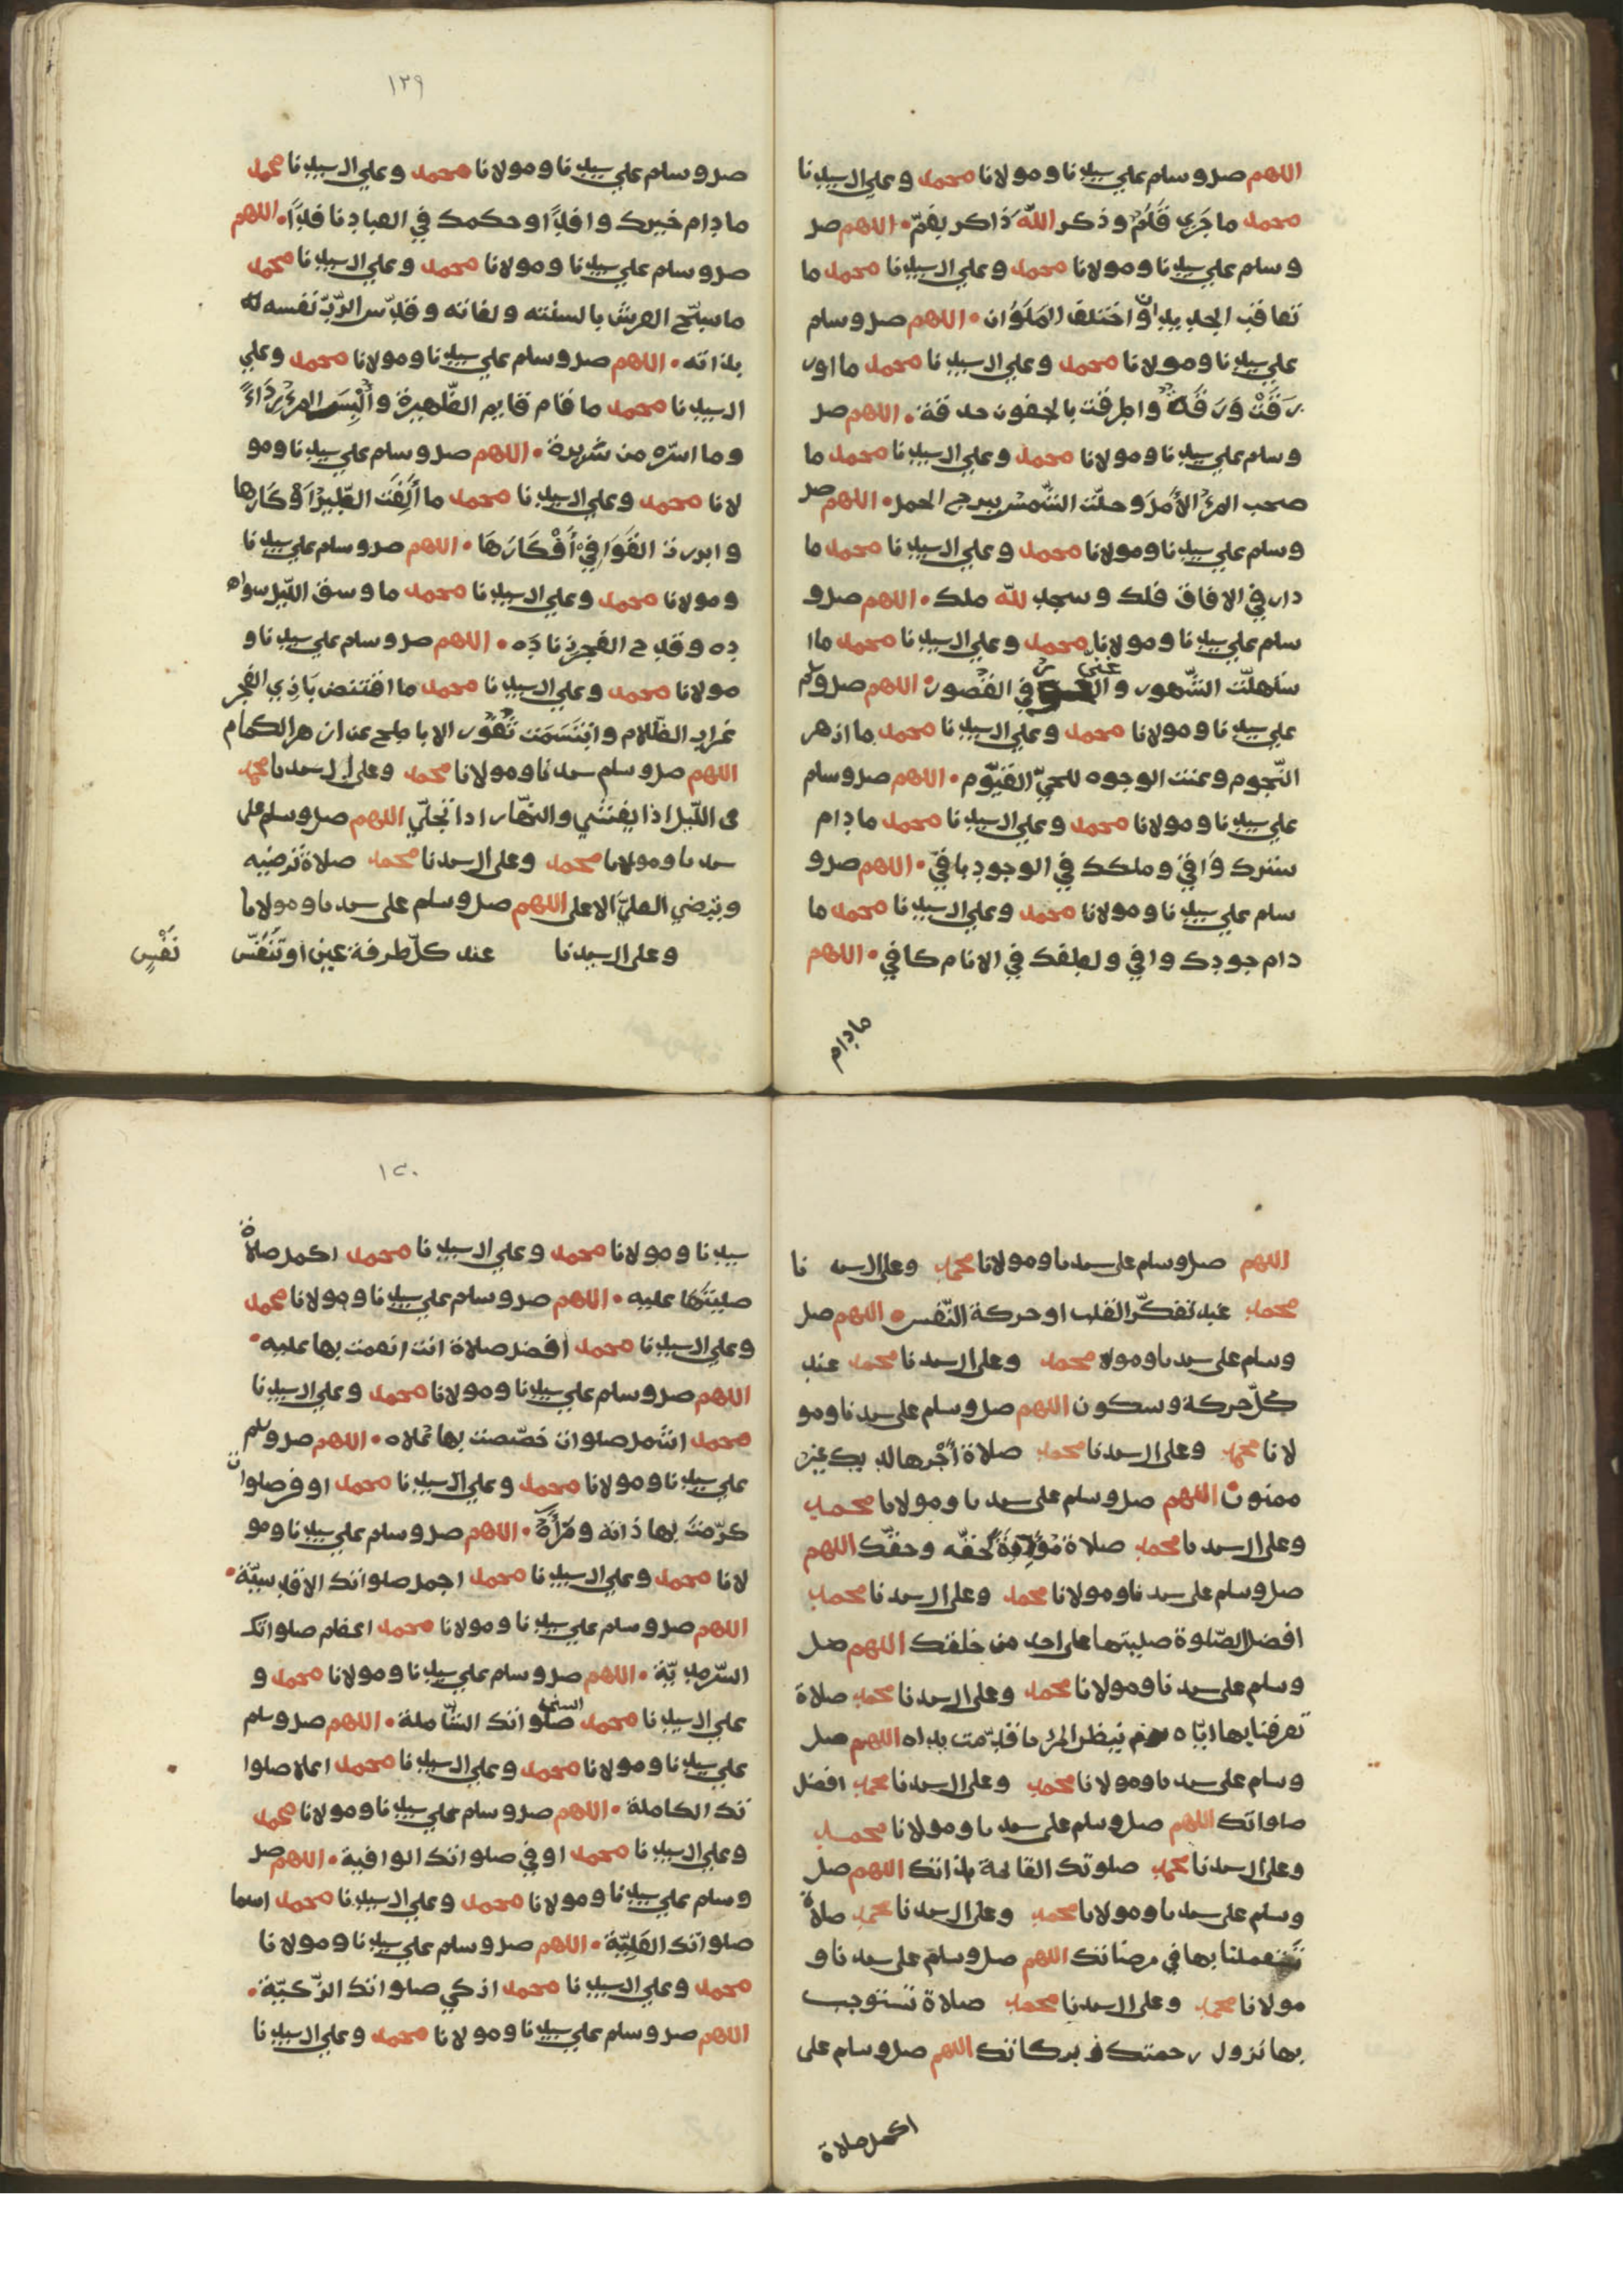 اللهم صل وسلم علي سيدنا ومولانا محمد وعلي ال سيدنا
محمد ما جَرَي قَلَمٌ وذكر اللّه ذاكر بفمّ • اللهم صل
وسلم علي سيدنا ومولانا محمد وعلي ال سيدنا محمد ما
تعاقب الجديدان واختلف المَلَوَان • اللهم صل وسلم
علي سيدنا ومولانا محمد وعلي ال سيدنا محمد ما اور
رَقَتْ وَرَقَةٌ واطرفت بالجفون حدقة • اللهم صل
وسلم علي سيدنا ومولانا محمد وعلي ال سيدنا محمد ما
صحب المرءُ الأمَل وحلّت الشّمس ببرج الحمل • اللهم صل
وسلم علي سيدنا ومولانا محمد وعلي ال سيدنا محمد ما
دار في الافاق فلك وسجد للّه ملك • اللهم صل و
سلم علي سيدنا ومولانا محمد وعلي ال سيدنا محمد ما ا
ستهلّت الشّهور في القصور • اللهم صل وسلم
علي سيدنا ومولانا محمد وعلي ال سيدنا محمد ما ازهر
النّجوم وعنت الوجوه للحيّ القيّوم • اللهم صل وسلم
علي سيدنا ومولانا محمد وعلي ال سيدنا محمد ما دام
سترك وَافيٌ وملكك في الوجود باقيٌ • اللهم صل و
سلم علي سيدنا ومولانا محمد وعلي ال سيدنا محمد ما
دام جودك وافي ولطفك في الانام كافي • اللهم
ما دام
١٣٩
صل وسلم علي سيدنا ومولانا محمد وعلي ال سيدنا محمد
ما دام خيرك وافدًا وحكمك في العباد نافدًا • اللهم
صل وسلم علي سيدنا ومولانا محمد وعلي ال سيدنا محمد
ما سبّح العرش بالسنته ولغاته وقدّس الرّبّ نفسه له
بذاته • اللهم صل وسلم علي سيدنا ومولانا محمد وعلي
ال سيدنا محمد ما قام قايم الظّهيرة وأُلْبِسَ المرءُ رِدَاءً
وما اسرّه من شريرة • اللهم صل وسلم علي سيدنا ومو
لانا محمد وعلي ال سيدنا محمد ما أَلِفَت الطّيرُ اَوْكَارها
وابرزت القَوَافِيْ أَفْكَارَهَا • اللهم صل وسلم علي سيدنا
ومولانا محمد وعلي ال سيدنا محمد ما وسق اللّيل سوا
ده وقدح الفجر زنادَه • اللهم صل وسلم علي سيدنا و
مولانا محمد وعلي ال سيدنا محمد ما اقتنص بَازِي الفجر
غراب الظّلام وابْتَسَمَت ثُغُور الاباطح عن ازهر الكمام
اللهم صل وسلم سيدنا ومولانا محمد وعلي ال سيدنا محمد
في اللّيل اذا يغشي والنهّار اذا تجلّي اللهم صل وسلم على
سيدنا ومولانا محمد وعلى ال سيدنا محمد صلاة تَرضيه
وترضي العليّ الاعلى اللهم صل وسلم على سيدنا ومولانا
وعلى ال سيدنا عند كلّ طرفة عين او تَنَفّس نَفْسٍ
اللهم صل وسلم على سيدنا ومولانا محمد وعلى ال سيد نا
محمد عند تفكّر القلب او حركة النّفس • اللهم صل
وسلم على سيدنا ومولا محمد وعلى ال سيدنا محمد عند
كلّ حركة وسكون اللهم صل وسلم على سيدنا ومو
لانا محمد وعلى ال سيدنا محمد صلاة أَجْرها لديك غير
ممنون • اللهم صل وسلم على سيدنا ومولانا محمد
وعلى ال سيدنا محمد صلاة لحقّه وحقّك اللهم
صل وسلم على سيدنا ومولانا محمد وعلى ال سيدنا محمد
افضل الصّلوة صليتها على احد من خلقك اللهم صل
وسلم على سيدنا ومولانا محمد وعلى ال سيدنا محمد صلاة
تعرفنا بها ايّاه ينظر المرء ما قدّمت يداه اللهم صل
وسلم على سيدنا ومولانا محمد وعلى ال سيدنا محمد افضل
صلواتك اللهم صل وسلم على سيدنا ومولانا محمد
وعلى ال سيدنا محمد صلوتك القائمة بذاتك اللهم صل
وسلم على سيدنا ومولانا محمد وعلى ال سيدنا محمد صلاة
تستعملنا بها في مرضاتك اللهم صل وسلم على سيدنا و
مولانا محمد وعلى ال سيدنا محمد صلاة تستوجب
بها نزول رحمتك و بركاتك اللهم صل وسلم على
اكمل صلاة
١٤٠
سيدنا ومولانا محمد وعلي ال سيدنا محمد اكمل صلاة
صليتَهَا عليه • اللهم صل وسلم علي سيدنا ومولانا محمد
وعلي ال سيدنا محمد افضل صلاة انت انعمت بها عليه •
اللهم صل وسلم علي سيدنا ومولانا محمد وعلي ال سيدنا
محمد اشمل صلوات خصّصت بها عُلاه • اللهم صل وسلم
علي سيدنا ومولانا محمد وعلي ال سيدنا محمد اوفر صلوات
كرّمتَ بها ذاته ومَرْأَهُ • اللهم صل وسلم علي سيدنا ومو
لانا محمد وعلي ال سيدنا محمد اجمل صلواتك الاقدسيّة •
اللهم صل وسلم علي سيدنا ومولانا محمد اعظم صلواتك
السّرمديّة • اللهم صل وسلم علي سيدنا ومولانا محمد و
علي ال سيدنا محمد اسنى صلواتك الشّاملة • اللهم صل وسلم
علي سيدنا ومولانا محمد وعلي ال سيدنا محمد اعلا صلوا
تك الكاملة • اللهم صل وسلم علي سيدنا ومولانا محمد
وعلي ال سيدنا محمد اوفي صلواتك الوافية • اللهم صل
وسلم علي سيدنا ومولانا محمد وعلي ال سيدنا محمد اسما
صلواتك العَلِيّة • اللهم صل وسلم علي سيدنا ومولانا
محمد وعلي ال سيدنا محمد ازكي صلواتك الزّكيّة •
اللهم صل وسلم علي سيدنا ومولانا محمد وعلي ال سيدنا